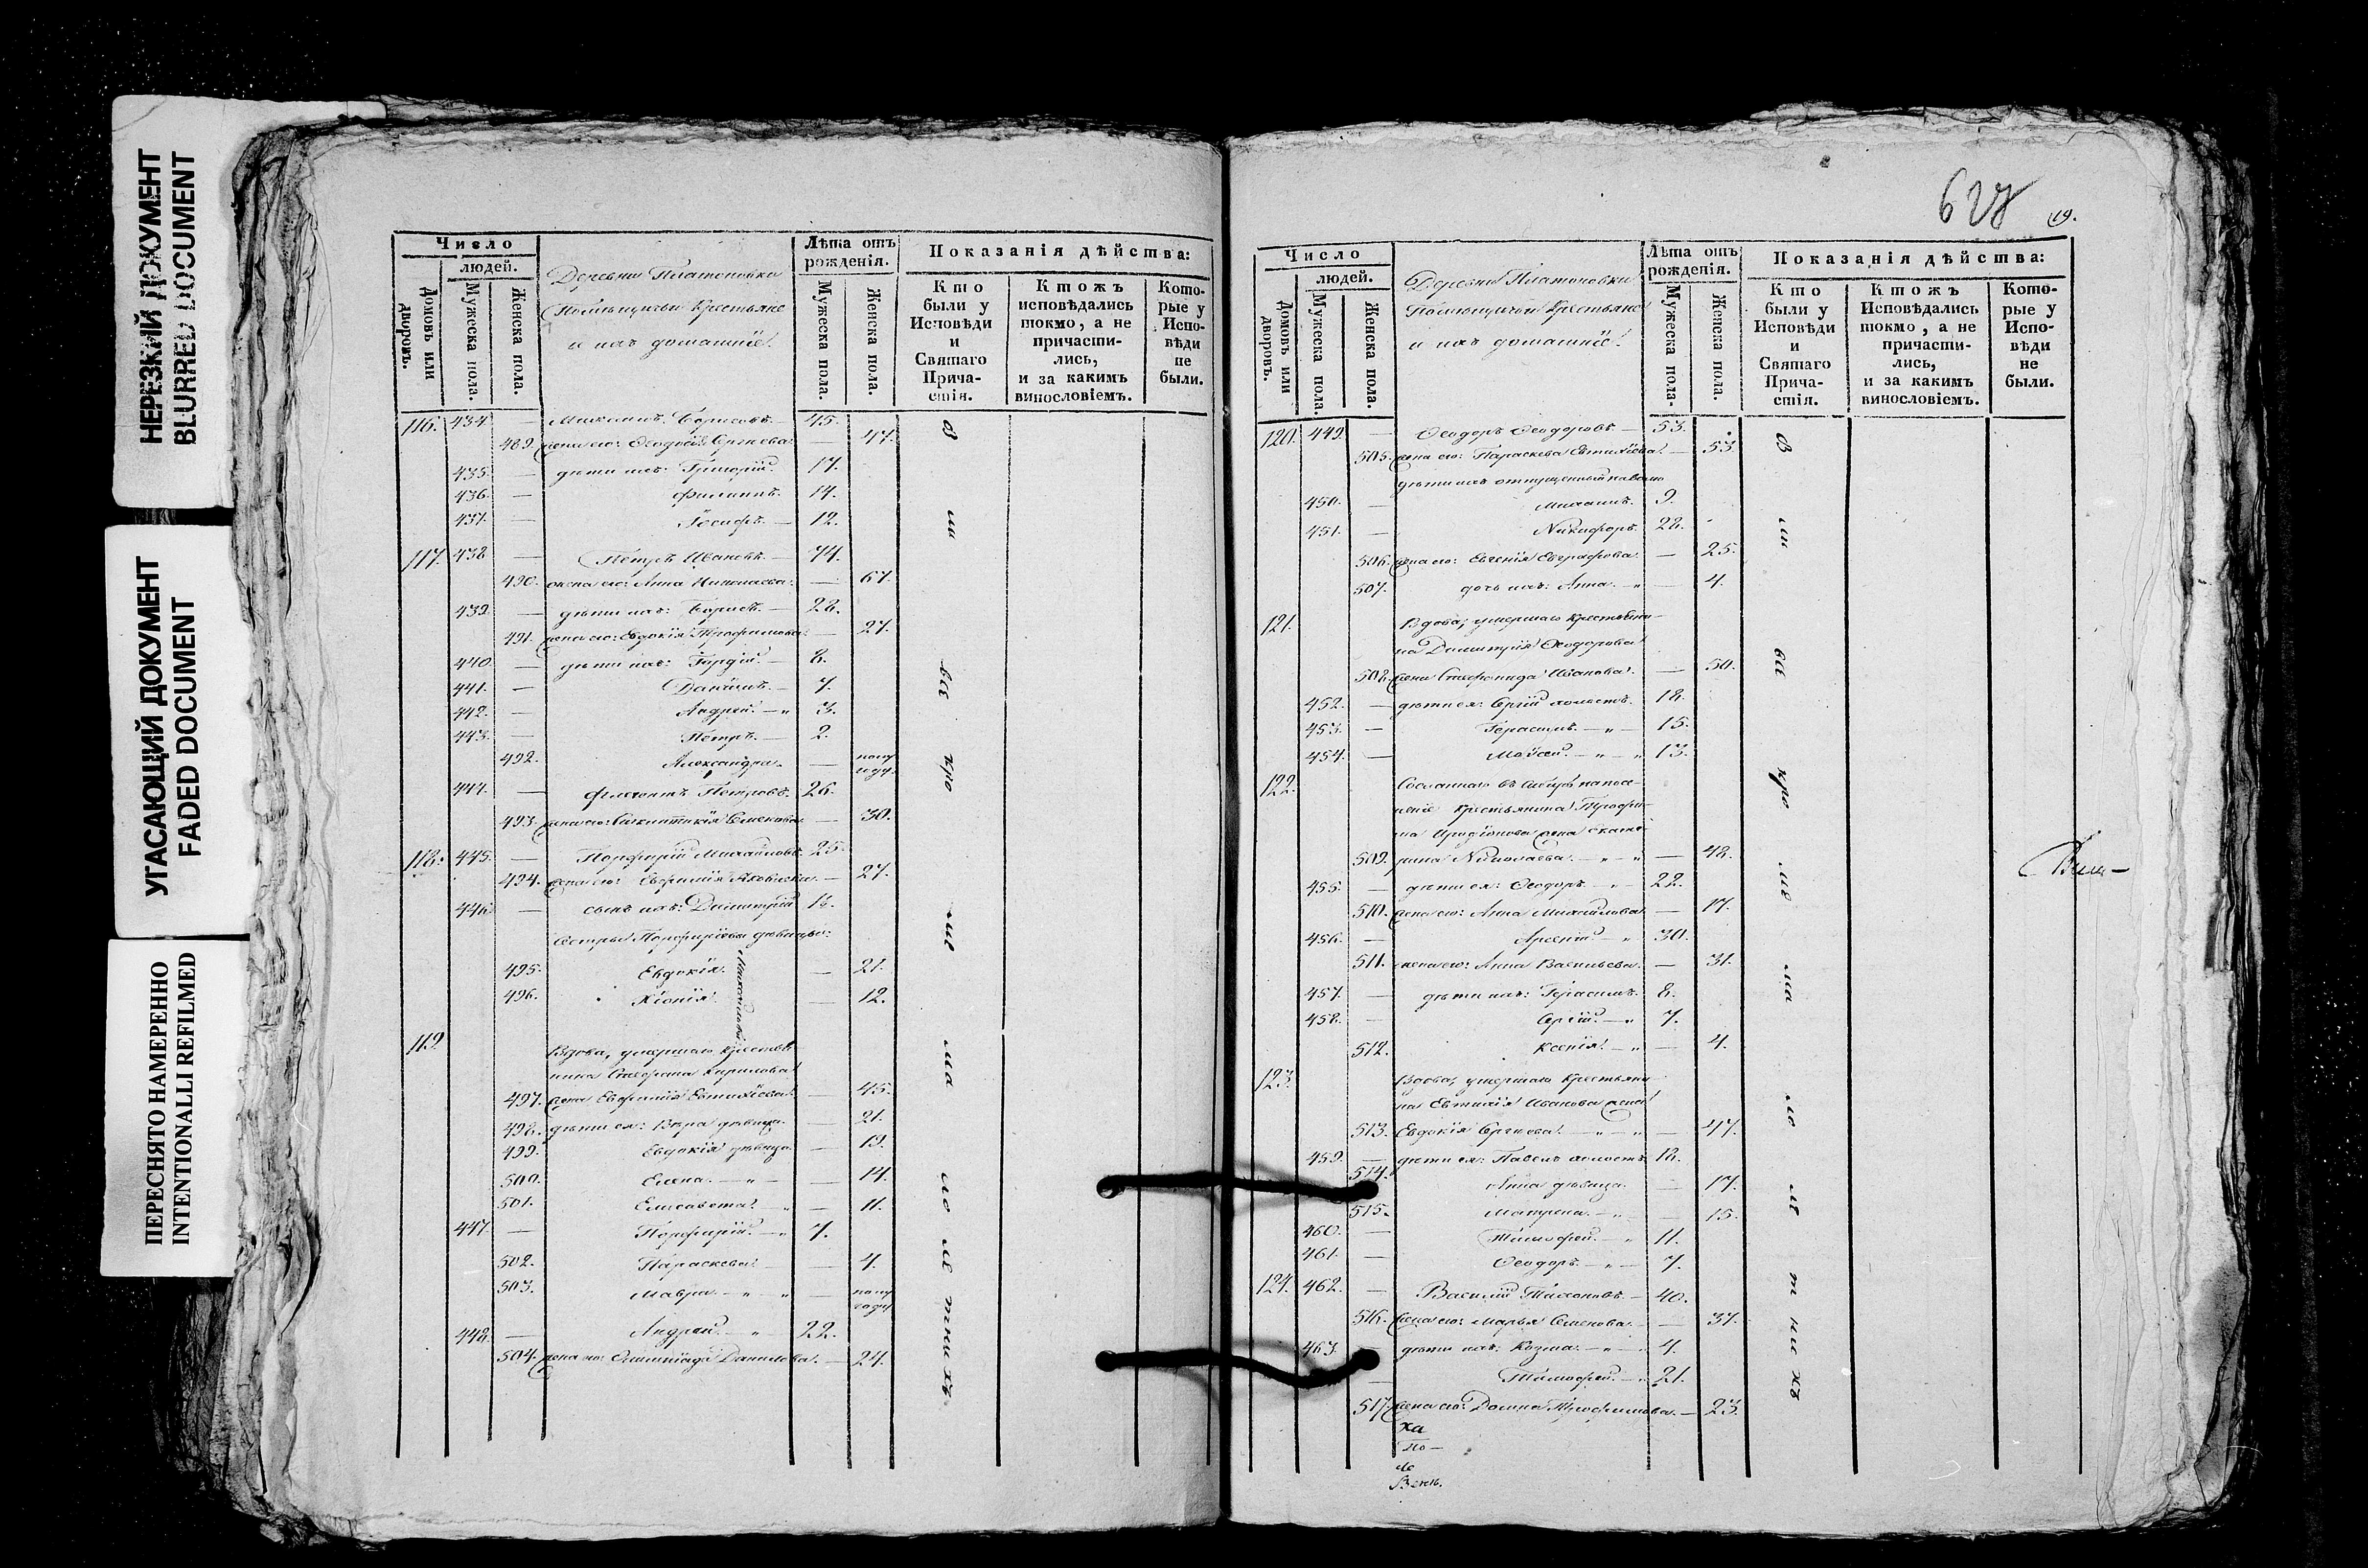 НЕРЕЗКИЙ ДОКУМЕНТ
BLURRED DOCUMENT
УГАСАЮЩИЙ ДОКУМЕНТ
FADED DOCUMENT
ПЕРЕСНЯТО НАМЕРЕННО
INTENTIONALLI REFILMED
Число
людей.
Домовъ или дворовъ.
Мужеска пола.
Женска пола.
Деревни Платоновки
Помѣщичьи крестьяне
и ихъ домашніе.
Лѣта отъ рожденія.
Мужеска пола.
Женска пола.
Показанія дѣйства:
Кто были у Исповѣди и Святаго Причастія.
Ктожъ исповѣдались токмо, а не причастились, и за какимъ винословіемъ.
Которые у Исповѣди не были.
116. 434. — Михаилъ Борисовъ. — 45.
489. жена его: Ѳеодосія Сергѣева — 47.
435. — дѣти ихъ: Григорій. 17.
436. — Филиппъ. 14.
437. — Іосифъ. — 12.
117. 438. — Петръ Ивановъ. — 74.
490. жена его: Анна Николаева. — 67.
439. — дѣти ихъ: Борисъ. — 28.
491. жена его: Евдокія Трофимова. — 27.
440. — дѣти ихъ: Гордій. — 8.
441. — Даніилъ. — 7.
442. — Андрей. — „ 3.
443. — Петръ. — 2.
492. Александра. — полугоду.
444. — Филиппъ Петровъ. 26.
493. жена его: Семенова — 30.
118. 445. — Порфирій Михайловъ. 25.
494. жена его: Евфимія Яковлева. — 27.
446. — сынъ ихъ: Димитрій
Сестры Порфиріевы дѣвицы:
495. Евдокія. — 21.
496. Хіонія. — 12.
Михайловы
119. Вдова, умершаго крестья-
нина Стефана Кирилова
497. жена Евфимія Евтихіева. — 45.
498. дѣти ея: Вѣра дѣвица. — 21.
499. Евдокія дѣвица — 19.
500. Елена. — „ — 14.
501. Елисавета. „ — 11.
447. — Порфирій. — „ 7.
502. Параскева. — 4.
503. Мавра. — „ — „ — полугоду
448. — Андрей. — „ — 22.
504. жена его: Олимпіада Данилова. — 24.
В
си
вы
кро
мѣ
ма
ло
лѣ
тнихъ.
628
19.
Число
людей.
Домовъ или дворовъ.
Мужеска пола.
Женска пола.
Деревни Платоновки
Помѣщичьи крестьяне
и ихъ домашніе.
Лѣта отъ рожденія.
Мужеска пола.
Женска пола.
Показанія дѣйства:
Кто были у Исповѣди и Святаго Причастія.
Ктожъ Исповѣдались токмо, а не причастились, и за какимъ винословіемъ.
Которые у Исповѣди не были.
120. 449. — Ѳеодоръ Ѳеодоровъ. — 53.
505. жена его: Параскева Евтихіева. — 53.
дѣти ихъ отпущенный на волю
450. — Михаилъ. 9.
451. — Никифоръ. 28.
506. жена его: Евгенія Евграфова. — 25.
507. дочь ихъ: Анна. — „ — 4.
121. Вдова, умершаго крестьяни-
на Димитрія Ѳеодорова
508. жена Стефанида Иванова. — 50.
452. — дѣти ея: Сергій холостъ. 18.
453. — Герасимъ. — „ — 15.
454. — Моисей. — „ — „ 13.
122. Сосланнаго въ Сибирь на посе-
леніе крестьянина Трофи-
ма Иродіонова жена Екате-
509. рина Николаева. — „ — „ — 48.
455. — дѣти ея: Ѳеодоръ. — „ — 22.
510. жена его: Анна Михайлова. — 17.
456. — Арсеній. — „ 30.
511. жена его: Анна Васильева. — 31.
457. — дѣти ихъ: Герасимъ. 8.
458. — Сергій. — „ 7.
512. Ксенія. — „ — 4.
123. Вдова, умершаго крестьяни-
на Евтихія Иванова жена
513. Евдокія Сергѣева. — „ — „ — 47.
459. — дѣти ея: Павелъ холостъ 18.
514. Анна дѣвица. — 17.
515. Матрена. — „ — 15.
460. — Тимофей. — „ 11.
461. — Ѳеодоръ. — „ — 7.
124. 462. — Василій Тихоновъ. — 40.
516. жена его: Марья Семенова. — 37.
463. — дѣти ихъ: Козма. — „ — 4.
— Тимофей. — „ 21.
517. жена его: Домна Трофимова. — 23.
В
си
вы
кро
мѣ
ма
ло
лѣ
т
ни
хъ